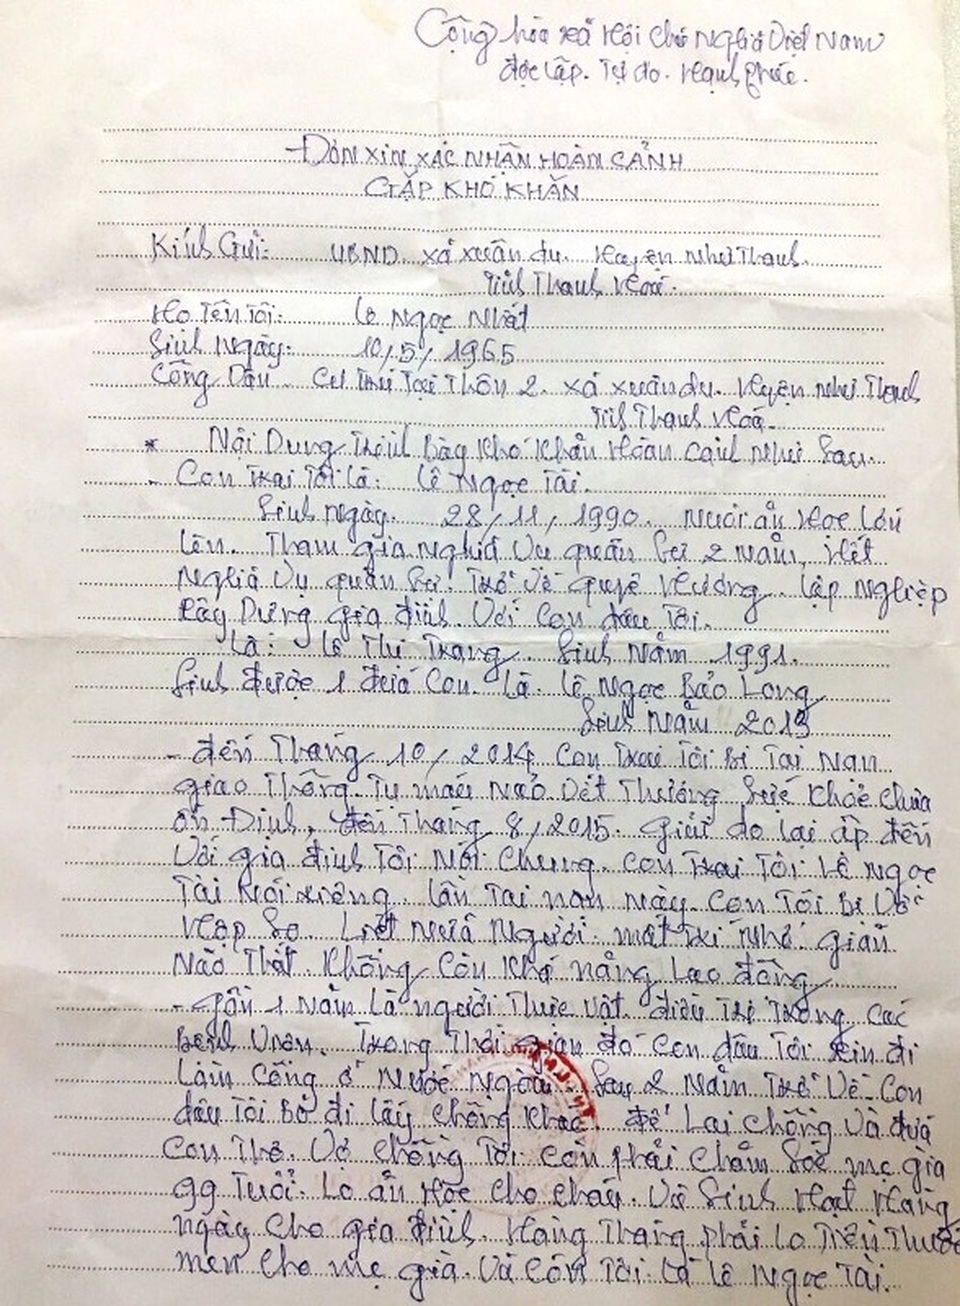 Cộng hòa xã Hội chủ Nghĩa Việt Nam
độc lập. Tự do. Hạnh phúc.
Đơn xin xác nhận hoàn cảnh
Gặp khó khăn
Kính Gửi: UBND. xã xuân du. Huyện Như Thanh.
Tỉnh Thanh Hoá.
Họ Tên Tôi: Lê Ngọc Nhất
Sinh Ngày: 10/5/1965
Công Dân Cư Trú Tại Thôn 2. xã xuân du. Huyện Như Thanh
Tỉnh Thanh Hoá.
* Nội Dung Trình Bày Khó Khăn Hoàn cảnh Như Sau.
- Con Trai Tôi Là: Lê Ngọc Tài.
Sinh Ngày. 28/11/1990. Nuôi ăn Học Lớn
lên. Tham gia Nghĩa Vụ quân Sự 2 Năm, Hết
Nghĩa Vụ quân Sự. Trở Về quê Hương. Lập Nghiệp
Xây Dựng gia đình. Với Con dâu Tôi.
Là: Lê Thị Trang. Sinh Năm 1991.
Sinh được 1 đứa Con. Là. Lê Ngọc Bảo Long
Sinh Năm 2013
- đến Tháng 10/2014 Con Trai Tôi Bị Tai Nạn
giao Thông. Tụ máu Não Vết Thương Sức Khỏe chưa
ổn Định, đến Tháng 8/2015. giữ do lại ập đến
Với gia đình Tôi Nói Chung. Con Trai Tôi Lê Ngọc
Tài Nói riêng. lần Tai nạn này. Con Tôi Bị Vỡ
Hộp Sọ. Liệt Nửa Người. mất Trí Nhớ. giãn
Não Thất. Không Còn Khả năng Lao động
- gần 1 Năm Là người Thực Vật. điều Trị Trong Các
Bệnh Viện. Trong Thời gian đó Con dâu Tôi xin đi
Làm Công ở Nước Ngoài. Sau 2 Năm Trở Về Con
dâu Tôi Bỏ đi lấy Chồng Khác để Lại Chồng Và đứa
Con Thơ. Vợ Chồng Tôi còn phải Chăm Sóc mẹ già
99 Tuổi. Lo ăn Học Cho Cháu. Và Sinh Hoạt Hàng
ngày Cho gia đình. Hàng Tháng phải Lo Tiền Thuốc
men Cho mẹ già. Và Con Tôi. Là Lê Ngọc Tài.